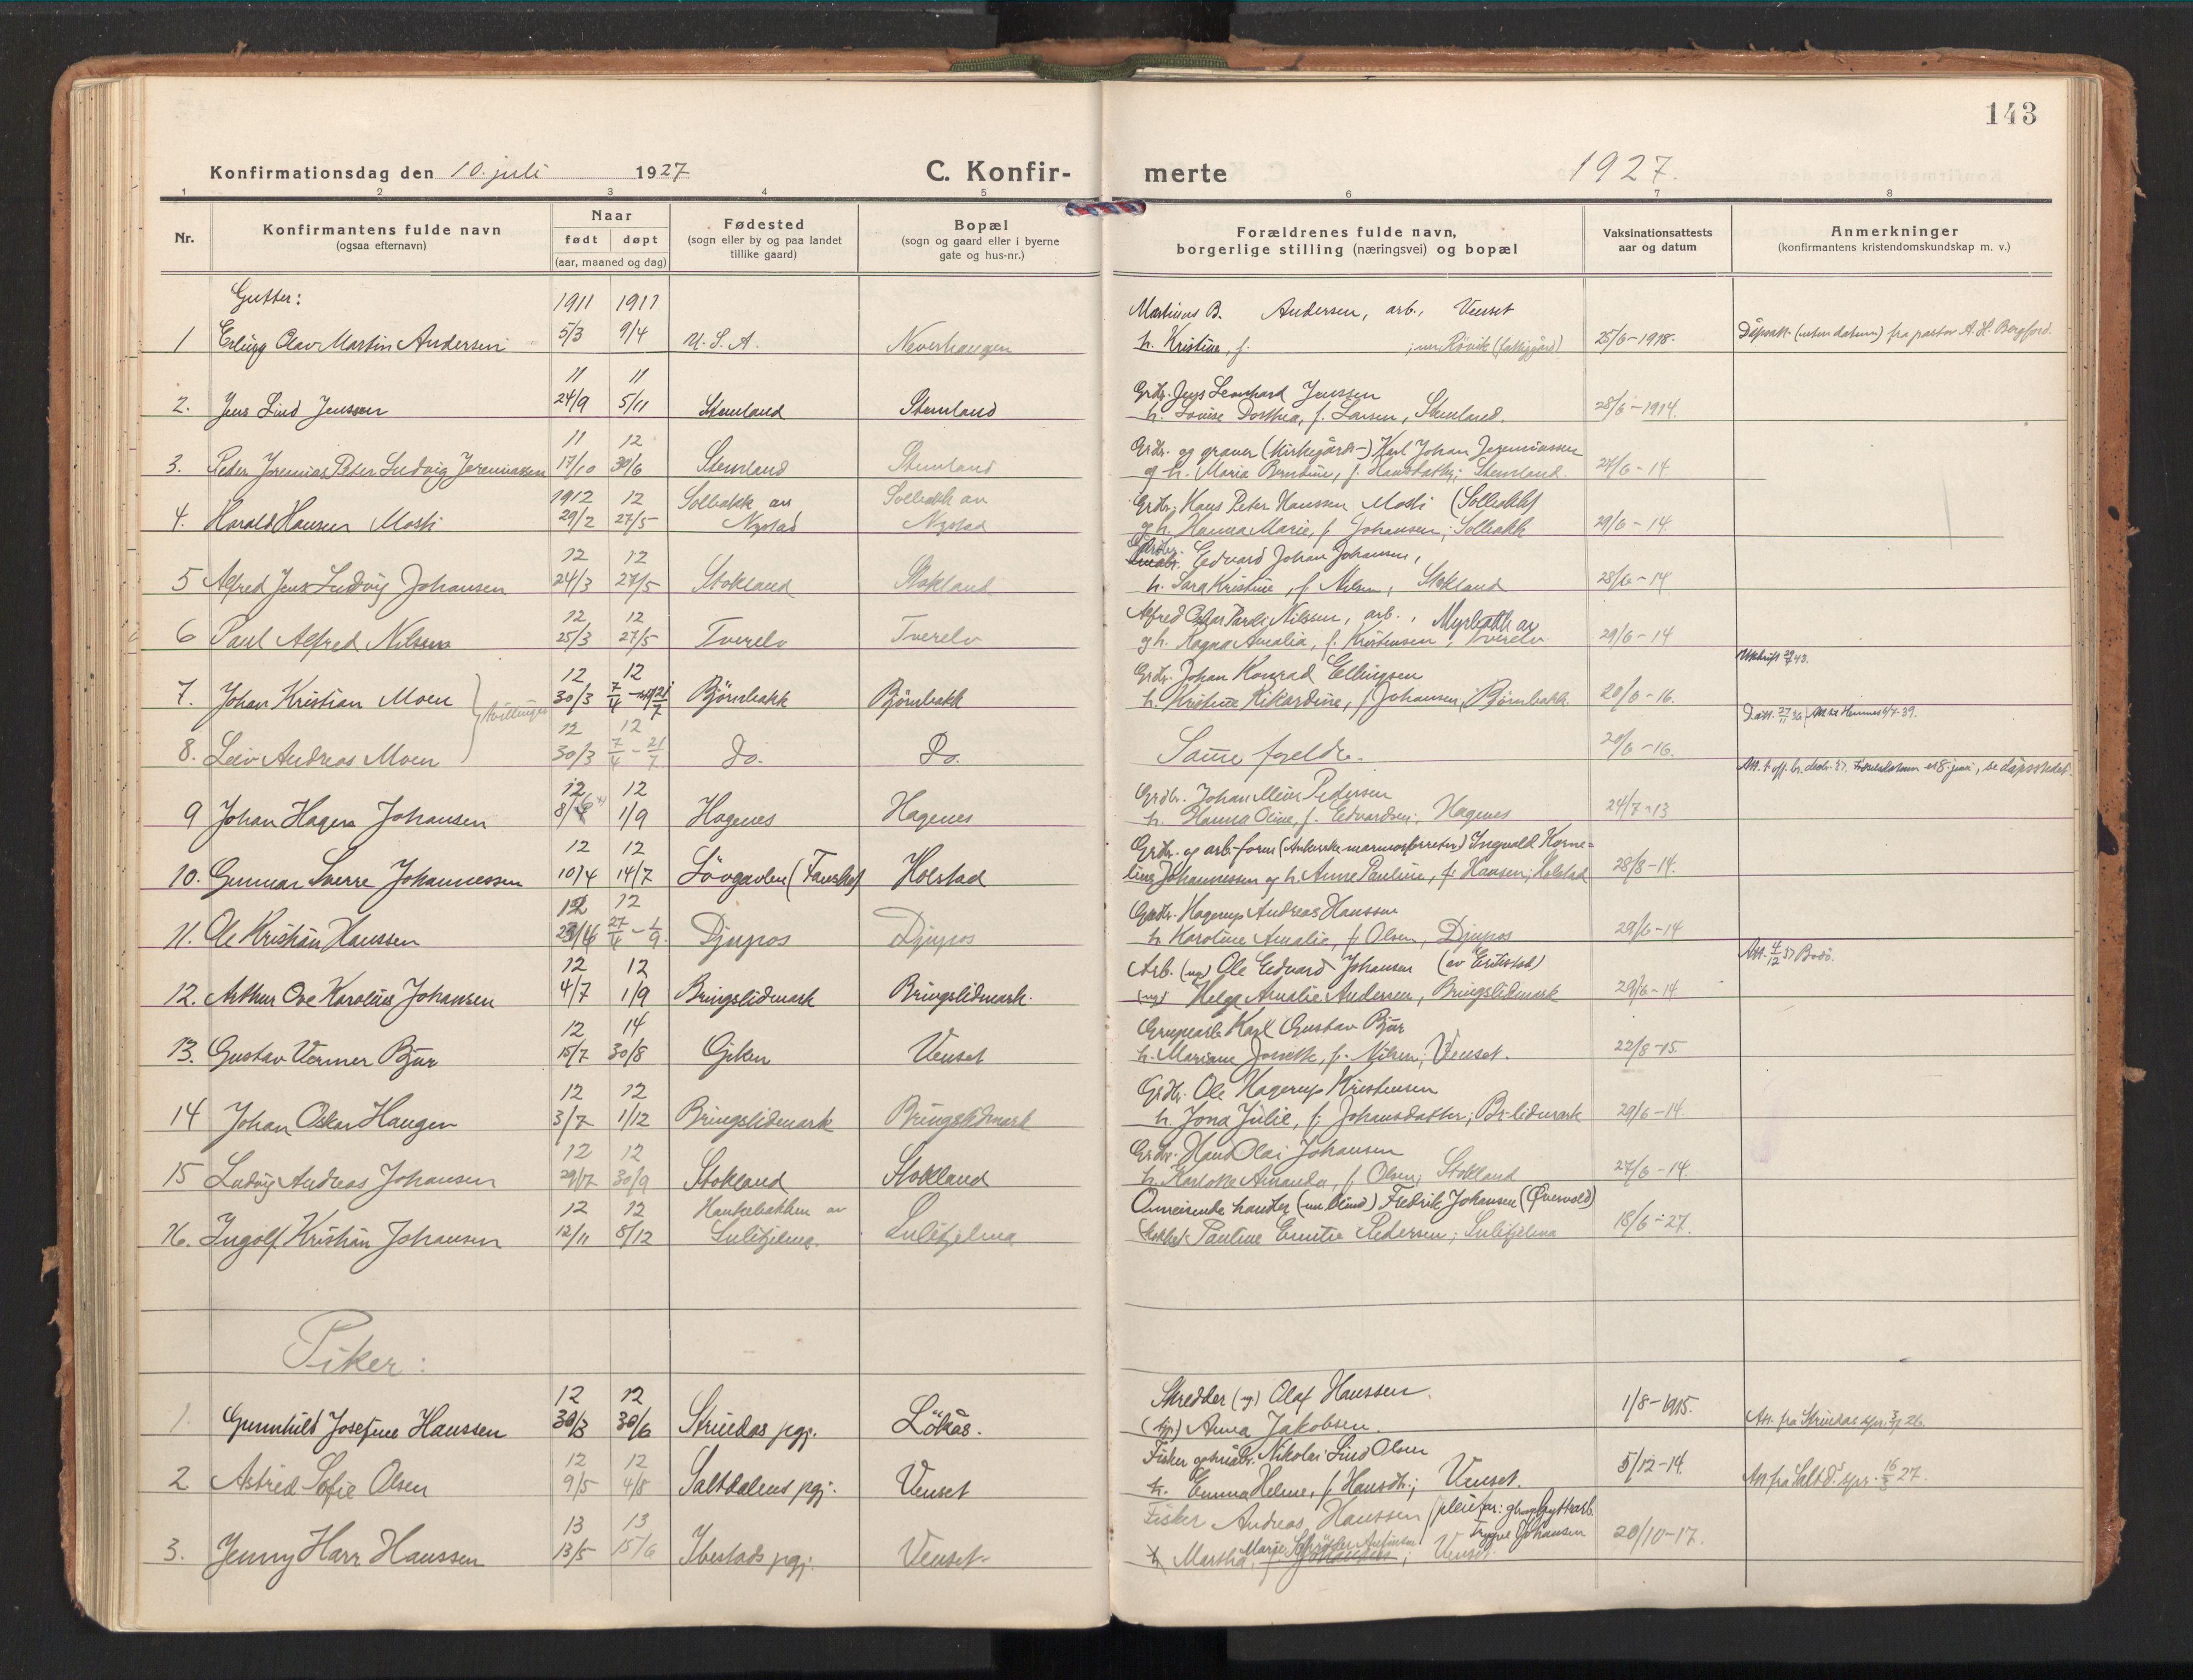 143
Konfirmationsdag den 10. juli 1927
C. Konfir-
merte
1927.
1 2 3 4 5 6 7 8
Nr.
Konfirmantens fulde navn
(ogsaa efternavn)
Naar
født døpt
(aar, maaned og dag)
Fødested
(sogn eller by og paa landet
tillike gaard)
Bopæl
(sogn og gaard eller i byerne
gate og hus-nr.)
Forældrenes fulde navn,
borgerlige stilling (næringsvei) og bopæl
Vaksinationsattests
aar og datum
Anmerkninger
(konfirmantens kristendomskundskap m. v.)
Gutter:
1911 1911 Martinus B. Andersen, arb., Venset
1 Erling Olav Martin Andersen 5/3 9/4 U.S.A. Neverhaugen h. Kristine, f. ; nu Rövik (fattiggård) 25/6-1918. Dåpsatt. (uten datum) fra pastor A. H. Bergford.
11 11 Grdbr. Jens Leonhard Jenssen
2. Jens Lind Jenssen 24/9 5/11 Stemland Stemland h. Lovise Dorthea, f. Larsen, Stemland. 28/6-1914.
11 12 Grdbr. og graver (kirkegårds-) Karl Johan Jeremiassen
3. Peder Jeremias Peter Ludvig Jeremiassen 17/10 30/6 Stemland Stemland og h. Maria Berntine, f. Hansdatter; Stemland. 27/6-14
1912 12 Solbakk av Solbakk av Grdbr. Hans Peter Hanssen Mosti (Solbakk)
4. Harald Hansen Mosti 29/2 27/5 Nystad Nystad og h. Hanna Marie, f. Johansen; Solbakk 29/6-14
12 12 Edvard Johan Johansen,
5 Alfred Jens Ludvig Johansen 24/3 27/5 Stokland Stokland h. Sara Kristine, f. Nilsen, Stokland 28/6-14
12 12 Alfred Oskar Parli Nilssen, arb., Myrbakk av
6 Paul Alfred Nilssen 25/3 27/5 Tverelv Tverelv og h. Ragna Amalia, f. Kristensen; Tverelv 29/6-14
12 12 Grdbr. Johan Konrad Ellingsen
7. Johan Kristian Moen 30/3 7/4-21/7 Björnbakk Björnbakk h. Kristine Rikardine, f. Johansen, Björnbakk. 20/6-16.
tvillinger
12 12
8. Leiv Andreas Moen 30/3 7/4-21/7 Do. Do. Samme foreldre. 20/6-16.
12 12 Grdbr. Johan Meier Pedersen
9 Johan Hagen Johansen 8/6 1/9 Hagenes Hagenes h. Hanna Oline, f. Edvardsen; Hagenes 24/7-13
12 12 Grdbr. og arb.form. (Ankerske marmorforretn.) Ingvald Korne-
10. Gunnar Sverre Johannessen 10/4 14/7 Lövgavlen (Fauske) Holstad lius Johannessen og h. Anne Pauline, f. Hansen; Holstad 28/8-14.
12 12 Grdbr. Hagerup Andreas Hanssen
11. Ole Kristian Hanssen 23/4 27/4-1/9. Djupos Djupos h. Karoline Amalie, f. Olsen, Djupos 29/6-14
12 12 Arb. (ug) Ole Edvard Johansen
12. Arthur Ove Karolius Johansen 4/7 1/9 Bringslidmark Bringslidmark. (ug) Helga Amalie Andersen, Bringslidmark 29/6-14 Att. 4/12 37 Bodö.
12 14 Grupearb. Karl Gustav Bjur
13. Gustav Verner Bjur 15/7 30/8 Giken Venset h. Mariane Jonette, f. Nilsen; Venset. 22/8-15.
12 12 Grdbr. Ole Hagerup Kristensen
14 Johan Oskar Haugen 3/7 1/12 Bringslidmark Bringslidmark h. Jona Julie, f. Johansdatter; Br-lidmark 29/6-14.
12 12 Grdbr. Hans Olai Johansen
15 Ludvig Andreas Johansen 29/7 30/9 Stokland Stokland h. Karlotte Amanda, f. Olsen; Stokland 27/6-14.
12 12 Hankebakken av Omreisende handler (nu blind) Fredrik Johansen (Övervold)
16. Ingolf Kristian Johansen 12/11 8/12 Sulitjelma. Sulitjelma Pauline Emilie Pedersen; Sulitjelma 18/6-27.
Piker:
12 12 Skredder (ug.) Olaf Hanssen.
1. Gunnhild Josefine Hanssen 30/3 30/6 Strindas pgj. Lökås. Anna Jakobsen. 1/8-1915. Att. fra Strindas spr. 3/7 26.
12 12 Nikolai Lind Olsen
2 Astrid Sofie Olsen 9/5 4/8 Saltdalens pgj. Venset h. Emma Helene, f. Hansdtr.; Venset. 5/12-14. Att fra Saltd.s spr. 16/3 27.
13 13 Fisker Andreas Hanssen
Trygve Johansen
3. Jenny Harr Hanssen 13/5 15/6 Ibestads pgj. Venset h. Martha, Marie ; Venset. 20/10-17.